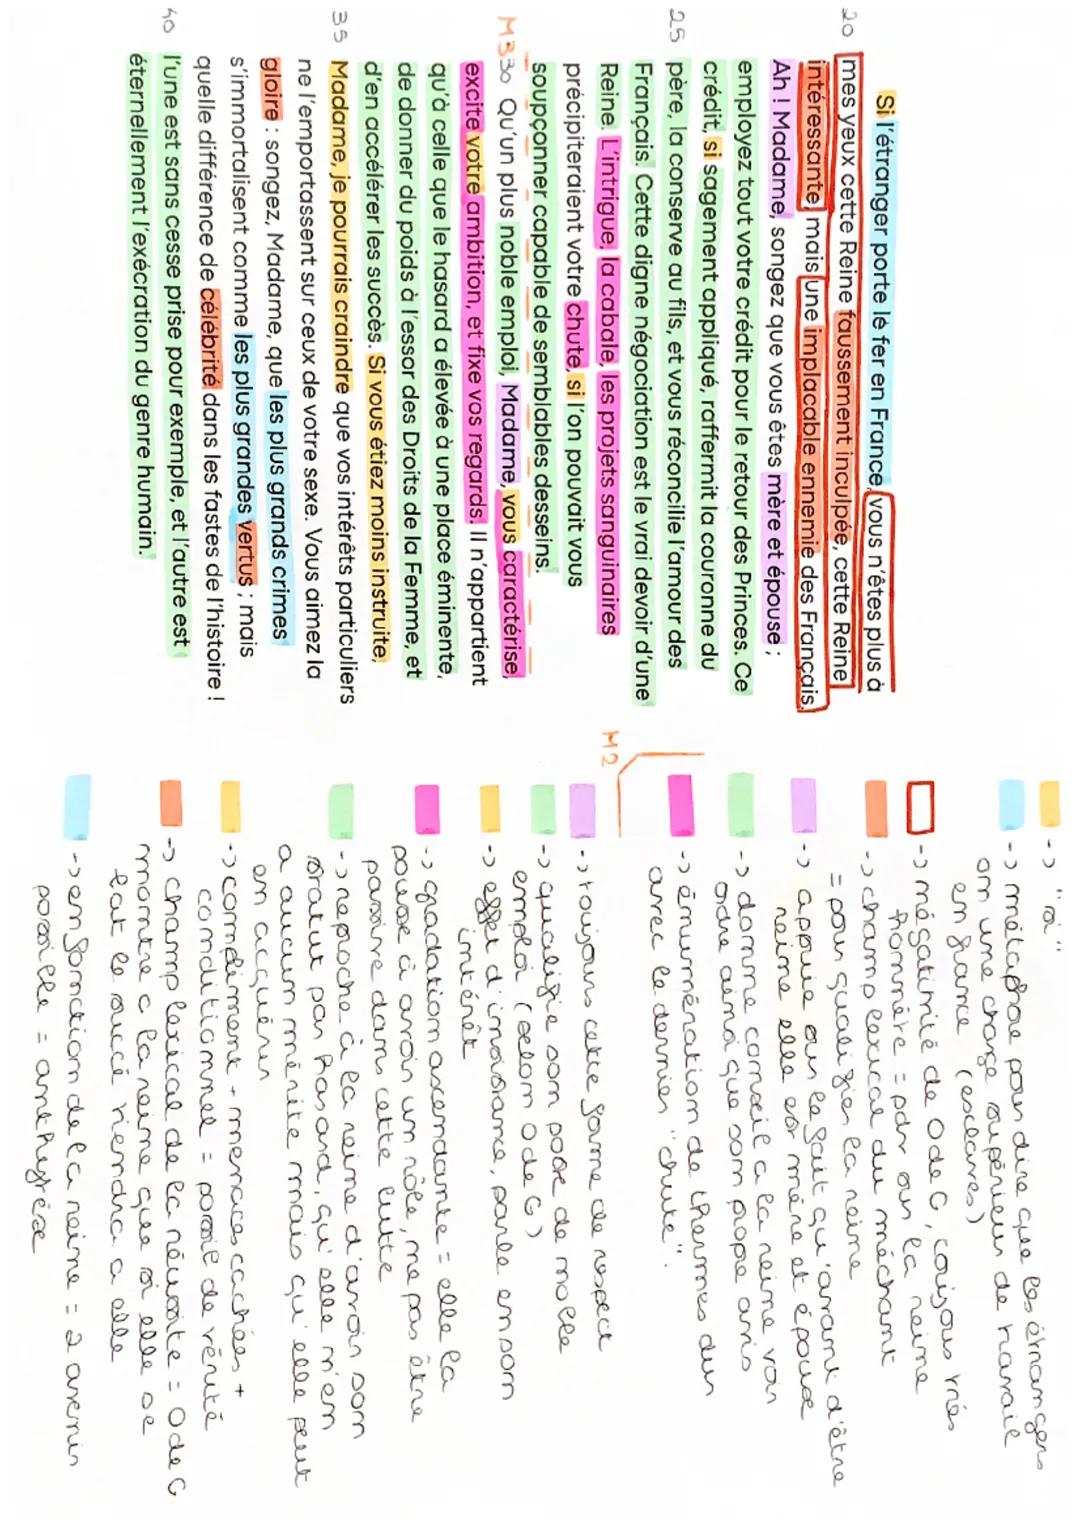 Si l'étranger porte le fer en France, vous n'êtes plus à
20 mes yeux cette Reine faussement inculpée, cette Reine
intéressante, mais une implacable ennemie des Français.
Ah ! Madame, songez que vous êtes mère et épouse ;
employez tout votre crédit pour le retour des Princes. Ce
crédit, si sagement appliqué, raffermit la couronne du
25 père, la conserve au fils, et vous réconcilie l'amour des
Français. Cette digne négociation est le vrai devoir d'une
Reine. L'intrigue, la cabale, les projets sanguinaires
précipiteraient votre chute, si l'on pouvait vous
soupçonner capable de semblables desseins.
M3 30 Qu'un plus noble emploi, Madame, vous caractérise,
excite votre ambition, et fixe vos regards. Il n'appartient
qu'à celle que le hasard a élevée à une place éminente,
de donner du poids à l'essor des Droits de la Femme, et
d'en accélérer les succès. Si vous étiez moins instruite,
35 Madame, je pourrais craindre que vos intérêts particuliers
ne l'emportassent sur ceux de votre sexe. Vous aimez la
gloire : songez, Madame, que les plus grands crimes
s'immortalisent comme les plus grandes vertus ; mais
quelle différence de célébrité dans les fastes de l'histoire !
40 l'une est sans cesse prise pour exemple, et l'autre est
éternellement l'exécration du genre humain.
-> "si"
-> métaphore pour dire que les étrangers
on une charge supérieur de travail
en france (esclaves)
-> négativité de O de G, toujours très
honnête = pdv sur la reine
-> champ lexical du méchant
= pour qualifier la reine
-> appuie sur le fait qu'avant d'être
reine elle est mère et épouse
-> donne conseil a la reine voir
ordre ainsi que son propre avis
-> énumération de thermes dur
avec le dernier "chute".
M2
-> toujours cette forme de respect
-> qualifie son poste de noble
emploi (selon O de G)
-> effet d'insistance, parle en son
intérêt
-> gradation ascendante = elle la
pousse à avoir un rôle, ne pas être
passive dans cette lutte
-> reproche à la reine d'avoir son
statut par hasard, qu'elle n'en
a aucun mérite mais qu'elle peut
en acquérir
-> compliment - menaces cachées +
conditionnel = parait de vérité
-> champ lexical de la réussite = O de G
montre c la reine que si elle se
bat le succé viendra a elle
-> en fonction de la reine = 2 avenir
possible = antithèse